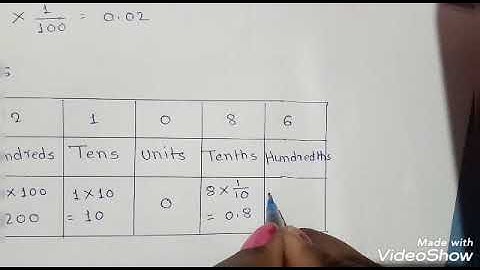 × 1/100 = 0.02
s
2 1 0 8 6
ndreds Tens Units Tenths Hundredths
×100 1×10 0 8×1/10
200 = 10 = 0.8
Made with
VideoShow